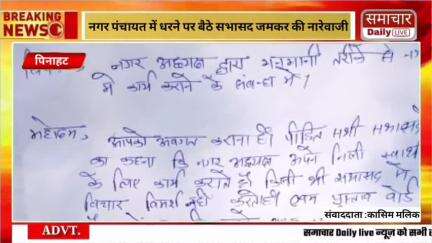 BREAKING
NEWS
नगर पंचायत में धरने पर बैठे सभासद जमकर की नारेवाजी
समाचार
Daily LIVE
पिनाहट
नगर अध्यक्ष द्वारा मनमानी तरीके से
से कार्य कराने के संबन्ध में।
महोदय,
आपको अवगत कराना है। पीड़ित सभी सभासदो
का कहना कि नगर अध्यक्ष अपने निजी स्वार्थ
के लिए कार्य कराते हैं किसी भी सभासद से
विचार विमर्श नहीं प्रस्ताव बोर्ड
संवाददाता :कासिम मलिक
ADVT.
समाचार Daily live न्यूज़ को सभी